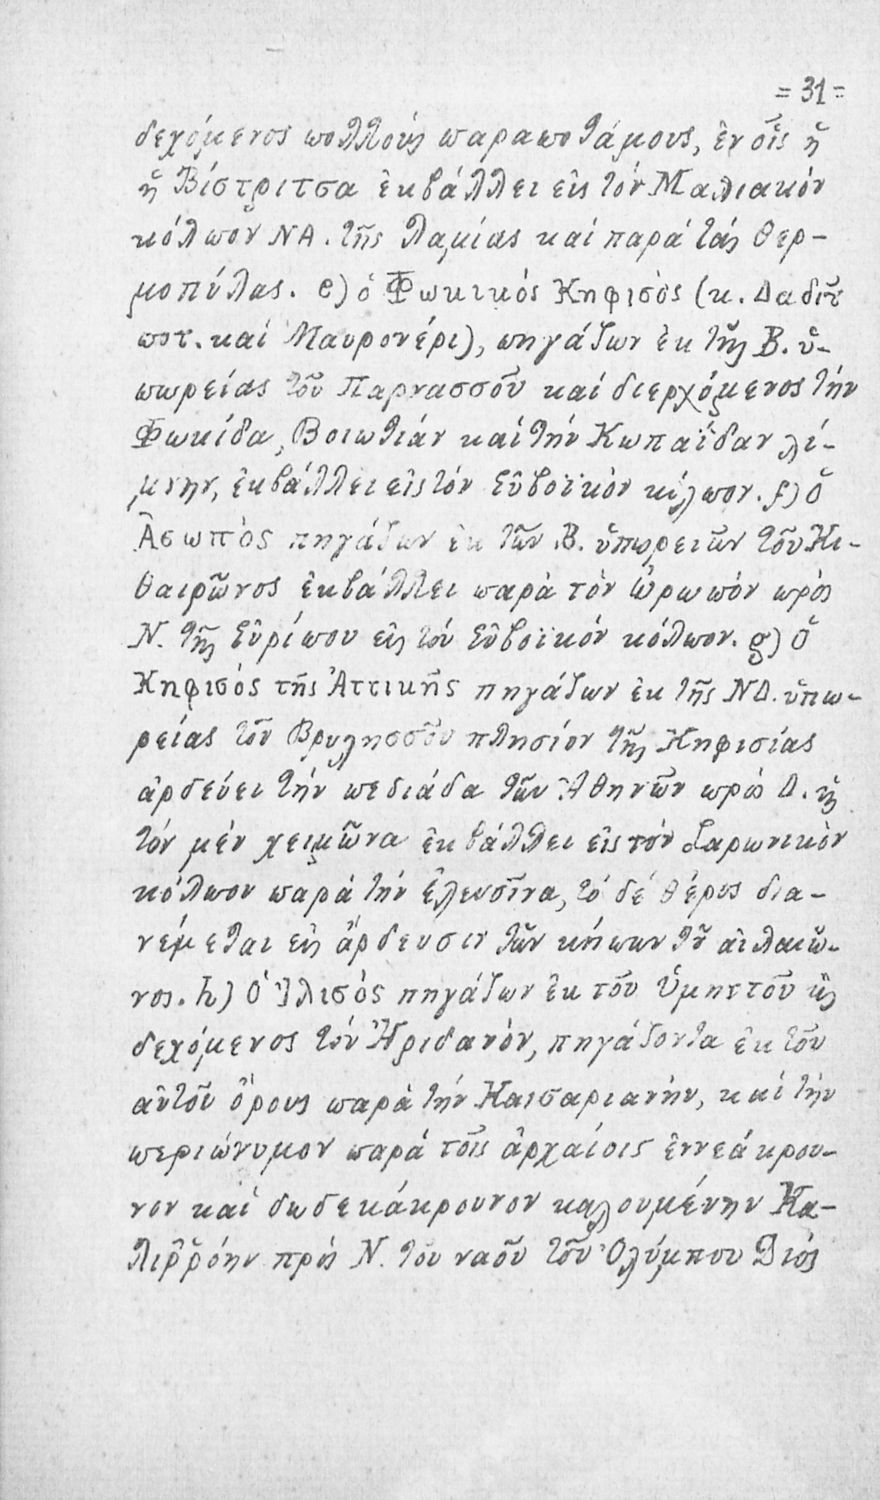 =31=
δεχόμενος πολλούς παραποτάμους, ἐν οἷς ἤ
ἤ Βίστριτσα ἐκβάλλει εἰς τόν Μαλιακόν
κόλπον ΝΑ. τῆς Λαμίας καί παρά τάς Θερ-
μοπύλας. e) ὁ Φωκικός Κηφισὸς (κ. Δαδιοῦ
ποτ. καί Μαυρονέρι), πηγάζων ἐκ τῆς Β. ὑ-
πωρείας τοῦ Παρνασσοῦ καί διερχόμενος τήν
Φωκίδα, Βοιωτιάν καί τήν Κωπαΐδαν λί-
μνην, ἐκβάλλει εἰς τόν Εὐβοϊκόν κόλπον. f) Ὁ
Ἀσωπὸς πηγάζων ἐκ τῶν Β. ὑπωρειῶν τοῦ Κι-
θαιρῶνος ἐκβάλλει παρὰ τὸν Ὠρωπόν πρός
Ν. τῆς Εὐρίπου εἰς τόν Εὐβοϊκόν κόλπον. g) Ὁ
Κηφισός τῆς Ἀττικῆς πηγάζων ἐκ τῆς ΝΔ. ὑπω-
ρείας τοῦ Βρυλησσοῦ πλησίον τῆς Κηφισίας
ἀρδεύει τήν πεδιάδα τῶν Ἀθηνῶν πρός Δ. κὶ
τόν μέν χειμῶνα ἐκβάλλει εἰς τόν Σαρωνικόν
κόλπον παρά τήν Ἐλευσῖνα, τό δέ θέρος δια-
νέμεται εἰς ἄρδευσιν τῶν κήπων τοῦ αἰλαιῶ-
νος. h) Ὁ Ἰλισὸς πηγάζων ἐκ τοῦ Ὑμηττοῦ κὶ
δεχόμενος τόν Ἠριδανὸν, πηγάζοντα ἐκ τοῦ
αὐτοῦ ὄρους παρὰ τήν Καισαριανήν, καί τήν
περιώνυμον παρά τοῖς ἀρχαίοις ἐννεάκρου-
νον καί δωδεκάκρουνον καλουμένην Κα-
λιῤῥόην πρός Ν. τοῦ ναοῦ τοῦ Ὀλύμπου Διός